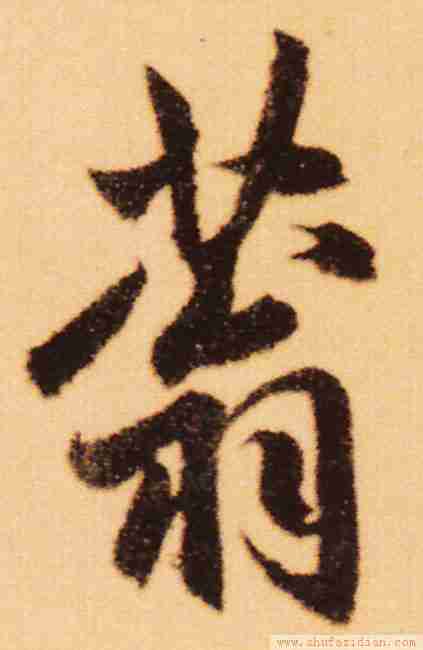 蓊
www.shufazidian.com